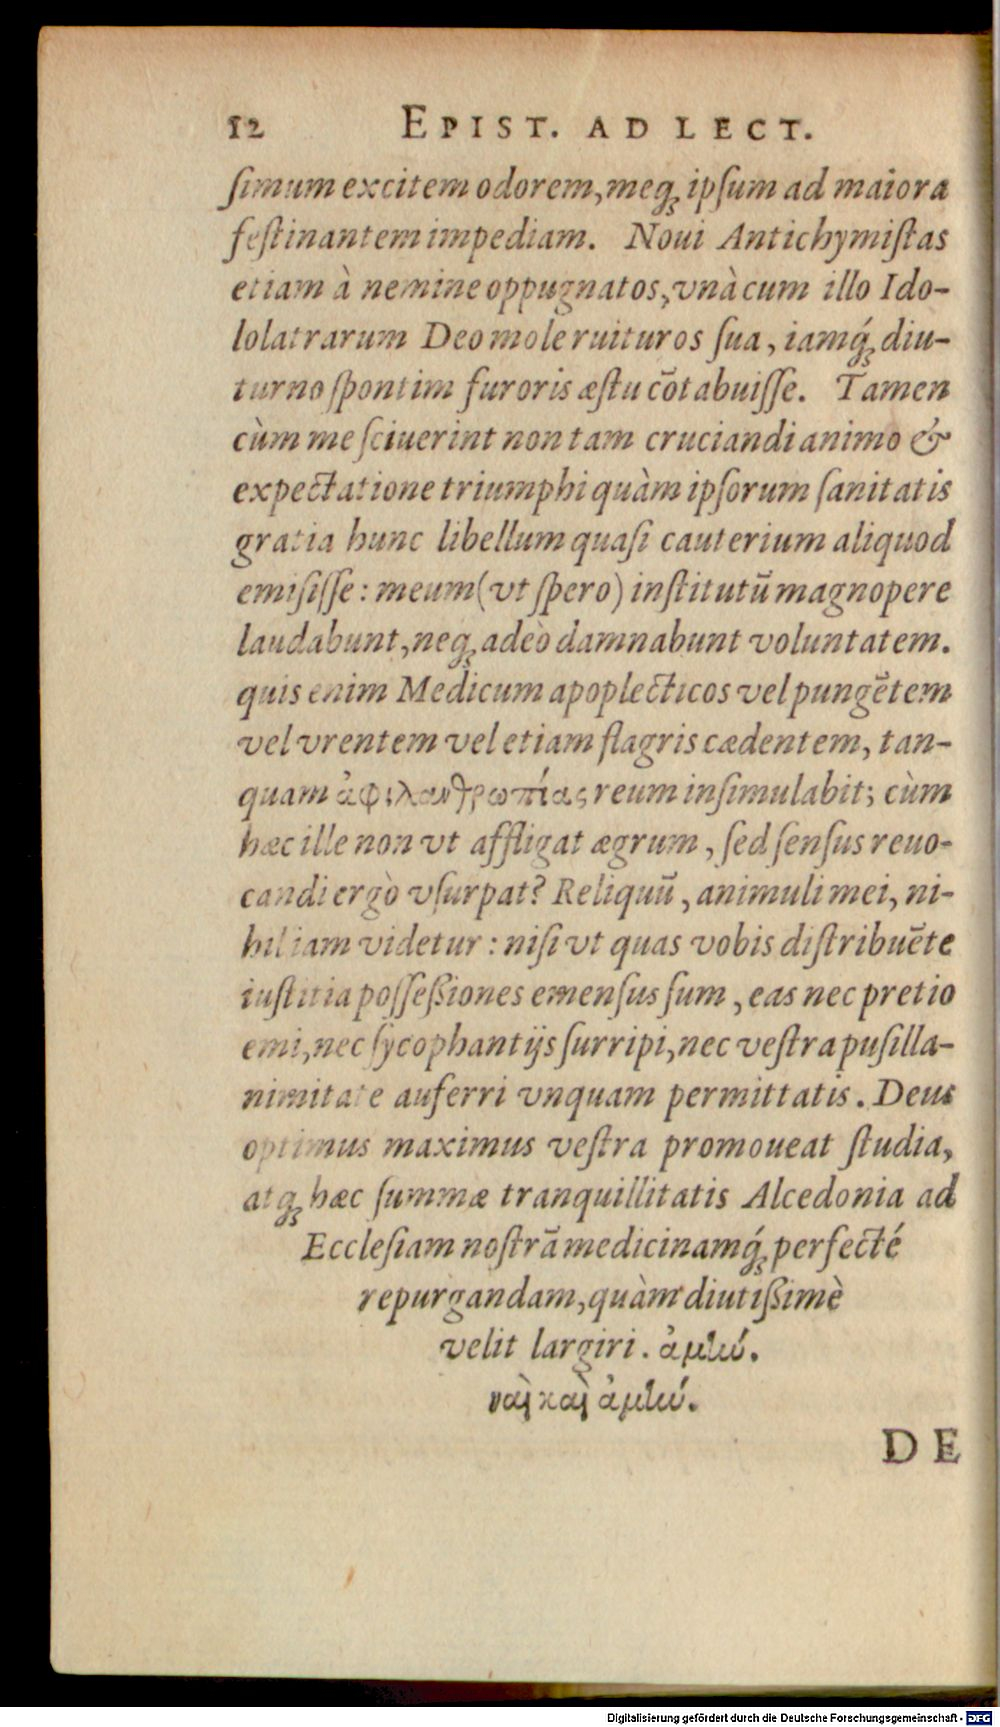 12 EPIST. AD LECT.
ſimum excitem odorem, meqꝫ ipſum ad maiora
feſtinantem impediam. Noui Antichymiſtas
etiam à nemine oppugnatos, vnà cum illo Ido-
lolatrarum Deo mole ruituros ſua, iamq́ꝫ diu-
turno ſpontim furoris æſtu cõtabuiſſe. Tamen
cùm me ſciuerint non tam cruciandi animo &
expectatione triumphi quàm ipſorum ſanitatis
gratia hunc libellum quaſi cauterium aliquod
emiſiſſe: meum (vt ſpero) inſtitutũ magnopere
laudabunt, neqꝫ adeò damnabunt voluntatem.
quis enim Medicum apoplecticos vel pungẽtem
vel vrentem vel etiam flagris cædentem, tan-
quam ἀφιλανθρωπίας reum inſimulabit; cùm
hæc ille non vt affligat ægrum, ſed ſenſus reuo-
candi ergò vſurpat? Reliquũ, animuli mei, ni-
hil iam videtur: niſi vt quas vobis diſtribuẽte
iuſtitia poſſeßiones emenſus ſum, eas nec pretio
emi, nec ſycophantijs ſurripi, nec veſtra puſilla-
nimitate auferri vnquam permittatis. Deus
optimus maximus veſtra promoueat ſtudia,
atqꝫ hæc ſummæ tranquillitatis Alcedonia ad
Eccleſiam noſtrã medicinamq́ꝫ perfecté
repurgandam, quàm diutißimè
velit largiri. ἀμίώ.
ναὶ καὶ ἀμίώ.
DE
Digitalisierung gefördert durch die Deutsche Forschungsgemeinschaft - DFG